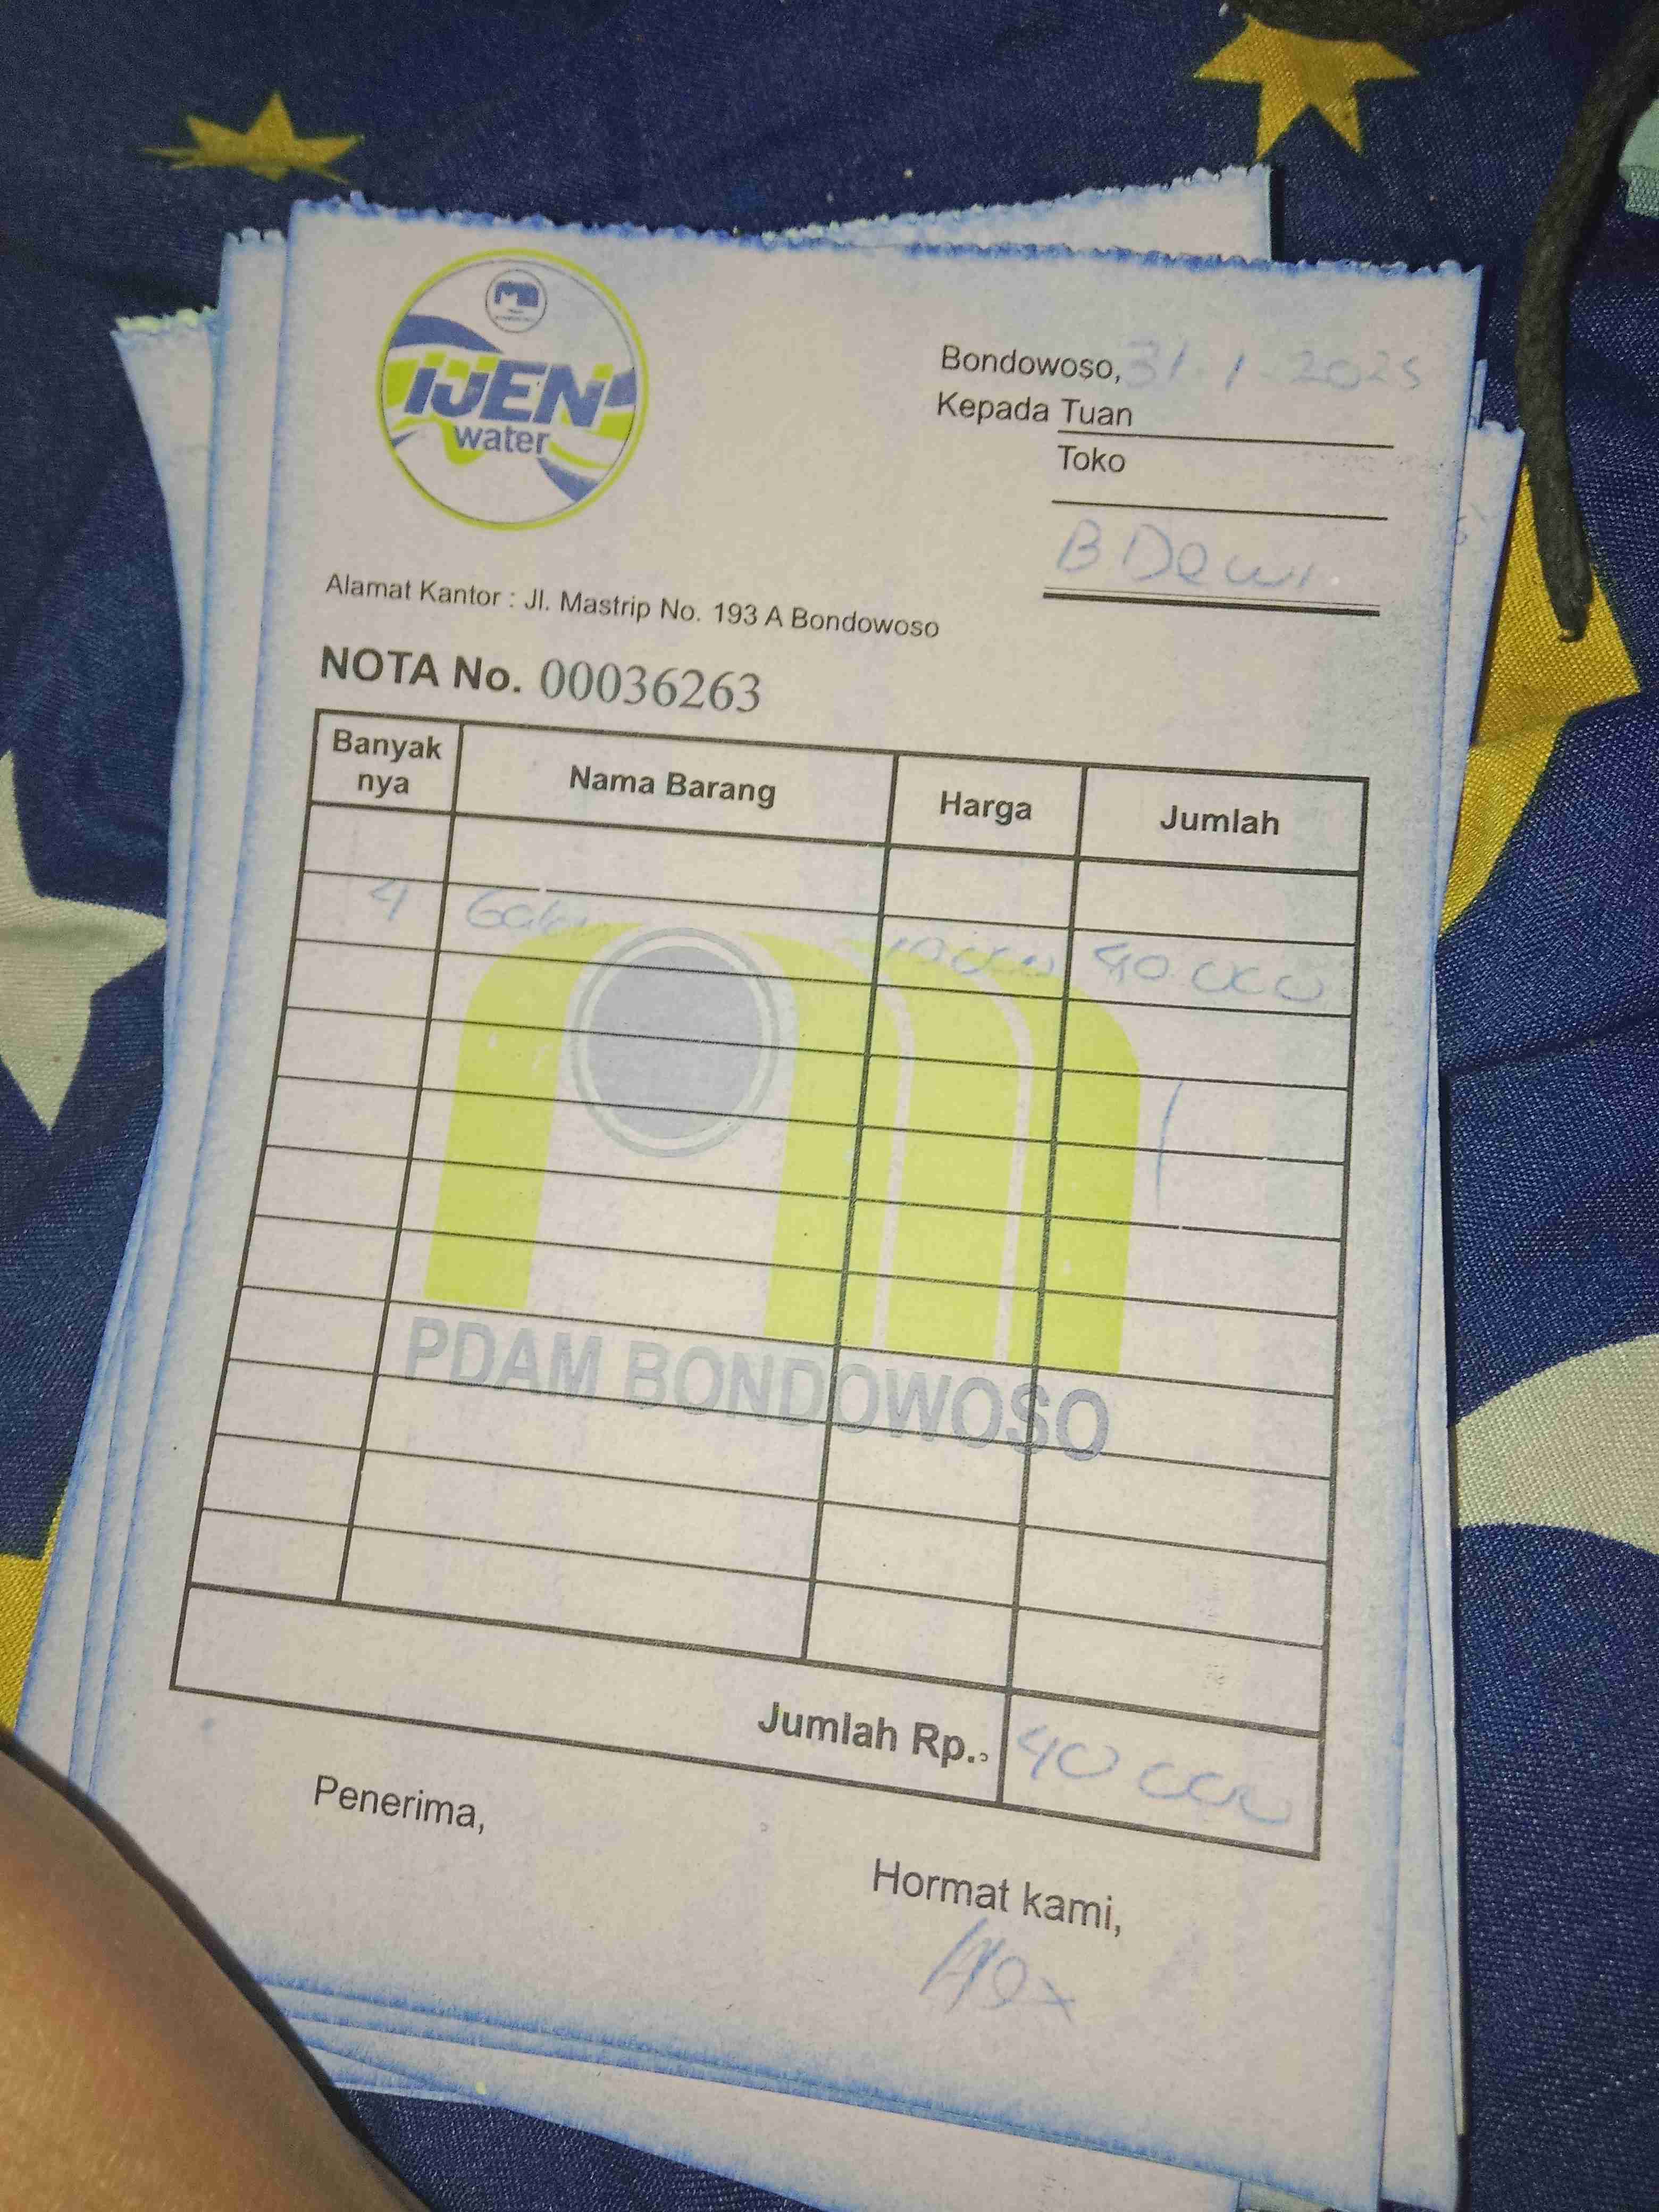 IJEN
water
Bondowoso, 31-1-2025
Kepada Tuan
Toko
B Dewi
Alamat Kantor : Jl. Mastrip No. 193 A Bondowoso
NOTA No. 00036263
Banyak nya Nama Barang Harga Jumlah
4 Galon 10.000 40.000
PDAM BONDOWOSO
Jumlah Rp. 40 000
Penerima,
Hormat kami,